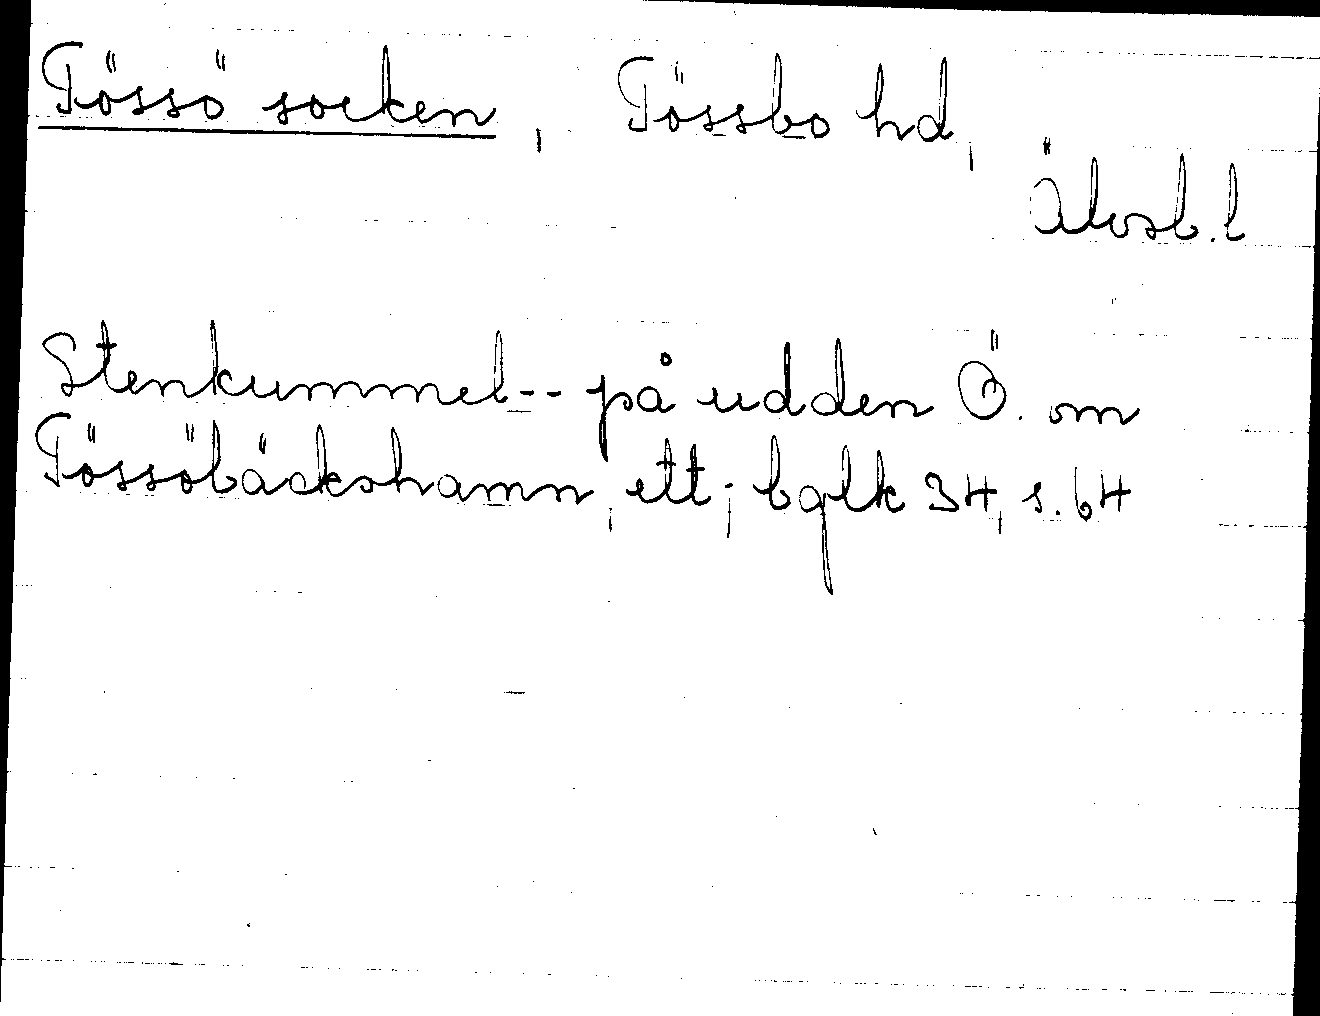 Tössö socken, Tössbo hd,
Älvsb. l
Stenkummel-- på udden Ö. om
Tössöbäckshamn, ett; bglk 34, s. 64